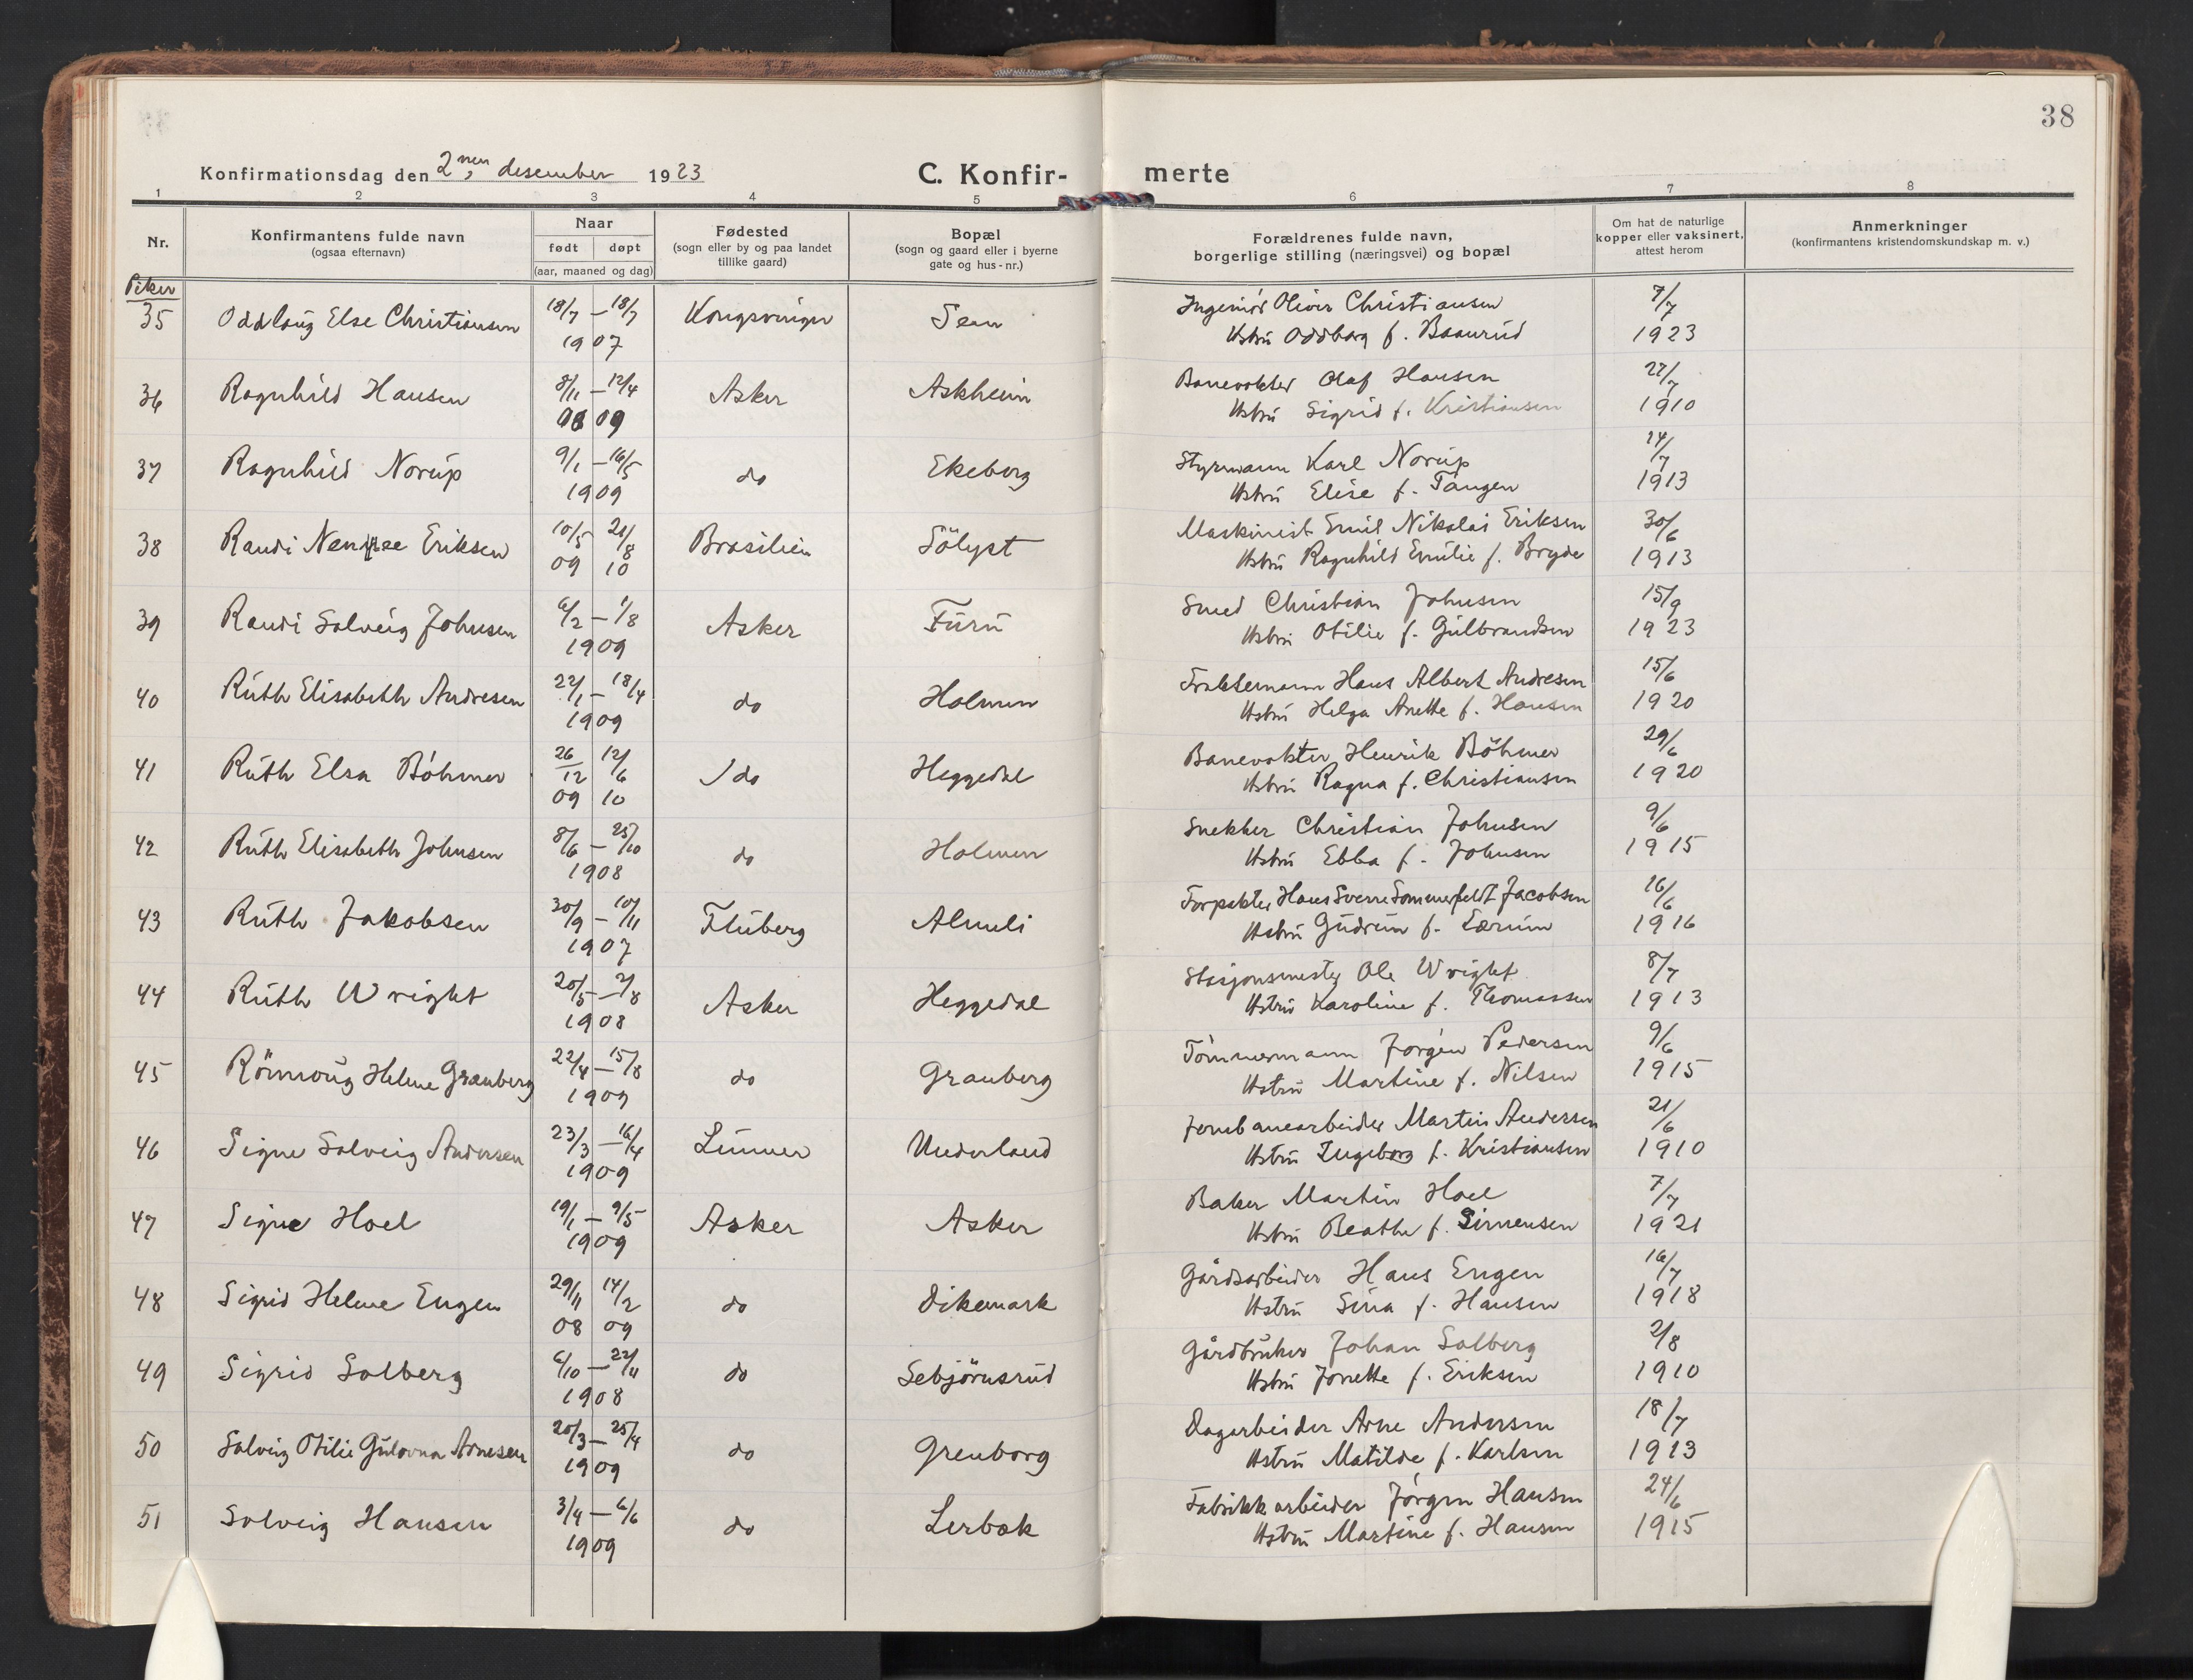 38
Konfirmationsdag den 2nen desember 1923
C. Konfir- merte
1 2 3 4 5 6 7 8
Nr.
Konfirmantens fulde navn
(ogsaa efternavn)
Naar
født døpt
(aar, maaned og dag)
Fødested
(sogn eller by og paa landet
tillike gaard)
Bopæl
(sogn og gaard eller i byerne
gate og hus-nr.)
Forældrenes fulde navn,
borgerlige stilling (næringsvei) og bopæl
Om hat de naturlige
kopper eller vaksinert,
attest herom
Anmerkninger
(konfirmantens kristendomskundskap m. v.)
Piker
35 Oddlaug Else Christiansen 18/7 – 18/7 Kongsvinger Sem Ingeniør Oliver Christiansen 7/7
1907 Hstrú Oddborg f. Baanrud 1923
36 Ragnhild Hansen 8/11 – 12/4 Asker Askheim Banevokter Olaf Hansen 27/7
08 09 Hstrú Sigrid f. Kristiansen 1910
37 Ragnhild Norúp 9/1 – 16/5 do Ekeberg Styrmann Karl Norúp 14/7
1909 Hstrú Elise f. Tangen 1913
38 Randi Eriksen 10/5 21/8 Brasilien Sölyst Maskinist Emil Nikolai Eriksen 30/6
09 10 Hstrú Ragnhild Emilie f. Bryde 1913
39 Randi Solveig Johnsen 6/2 – 1/8 Asker Fúrú Smed Christian Johnsen 15/9
1909 Hstrú Otilie f. Gúlbrandsen 1923
40 Rúth Elisabeth Andresen 22/1 – 18/4 do Holmen Fraktemann Hans Albert Andresen 15/6
1909 Hstrú Helga Anette f. Hansen 1920
41 Rúth Elsa Böhmer 26/12 12/6 do Heggedal Banevokter Henrik Böhmer 29/6
09 10 Hstrú Ragna f. Christiansen 1920
42 Rúth Elisabeth Johnsen 8/6 – 25/10 do Holmen Snekker Christian Johnsen 9/6
1908 Hstrú Ebba f. Johnsen 1915
43 Rúth Jakobsen 30/9 – 10/11 Flúberg Almeli Forpakter Hans Sverre Sommerfeldt Jacobsen 16/6
1907 Hstrú Gúdrún f. Lærúm 1916
44 Rúth Wright 20/5 – 2/8 Asker Heggedal Stasjonsmester Ole Wright 8/7
1908 Hstrú Karoline f. Thomassen 1913
45 Römoúg Helene Grauberg 22/4 – 15/8 do Grauberg Tömmermann Jörgen Pedersen 9/6
1909 Hstrú Martine f. Nilsen 1915
46 Signe Solveig Andersen 23/3 – 16/4 Lúnner Underland Jernbanearbeider Martin Andersen 21/6
1909 Hstrú Ingeborg f. Kristiansen 1910
47 Signe Hoel 19/1 – 9/5 Asker Asker Baker Martin Hoel 7/7
1909 Hstrú Beathe f. Simensen 1921
48 Sigrid Helene Engen 29/11 14/2 do Dikemark Gårdsarbeider Hans Engen 16/7
08 09 Hstrú Sina f. Hansen 1918
49 Sigrid Solberg 6/10 – 22/11 do Sebjörnsrúd Gårdbrúker Johan Solberg 2/8
1908 Hstrú Jonette f. Eriksen 1910
50 Solveig Otilie Gúlovna Arnesen 20/3 – 25/4 do Grenborg Dagarbeider Arne Andersen 18/7
1909 Hstrú Matilde f. Karlsen 1913
51 Solveig Hansen 3/4 – 6/6 do Lerbæk Fabrikkarbeider Jörgen Hansen 24/6
1909 Hstrú Martine f. Hansen 1915